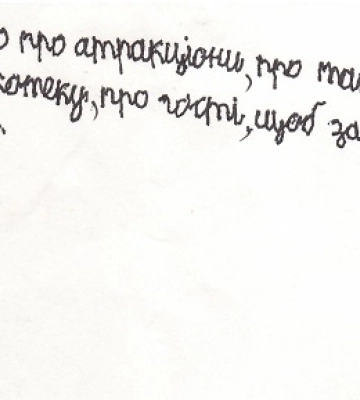 о про атракціони, про та
котеку, про гості, щоб за